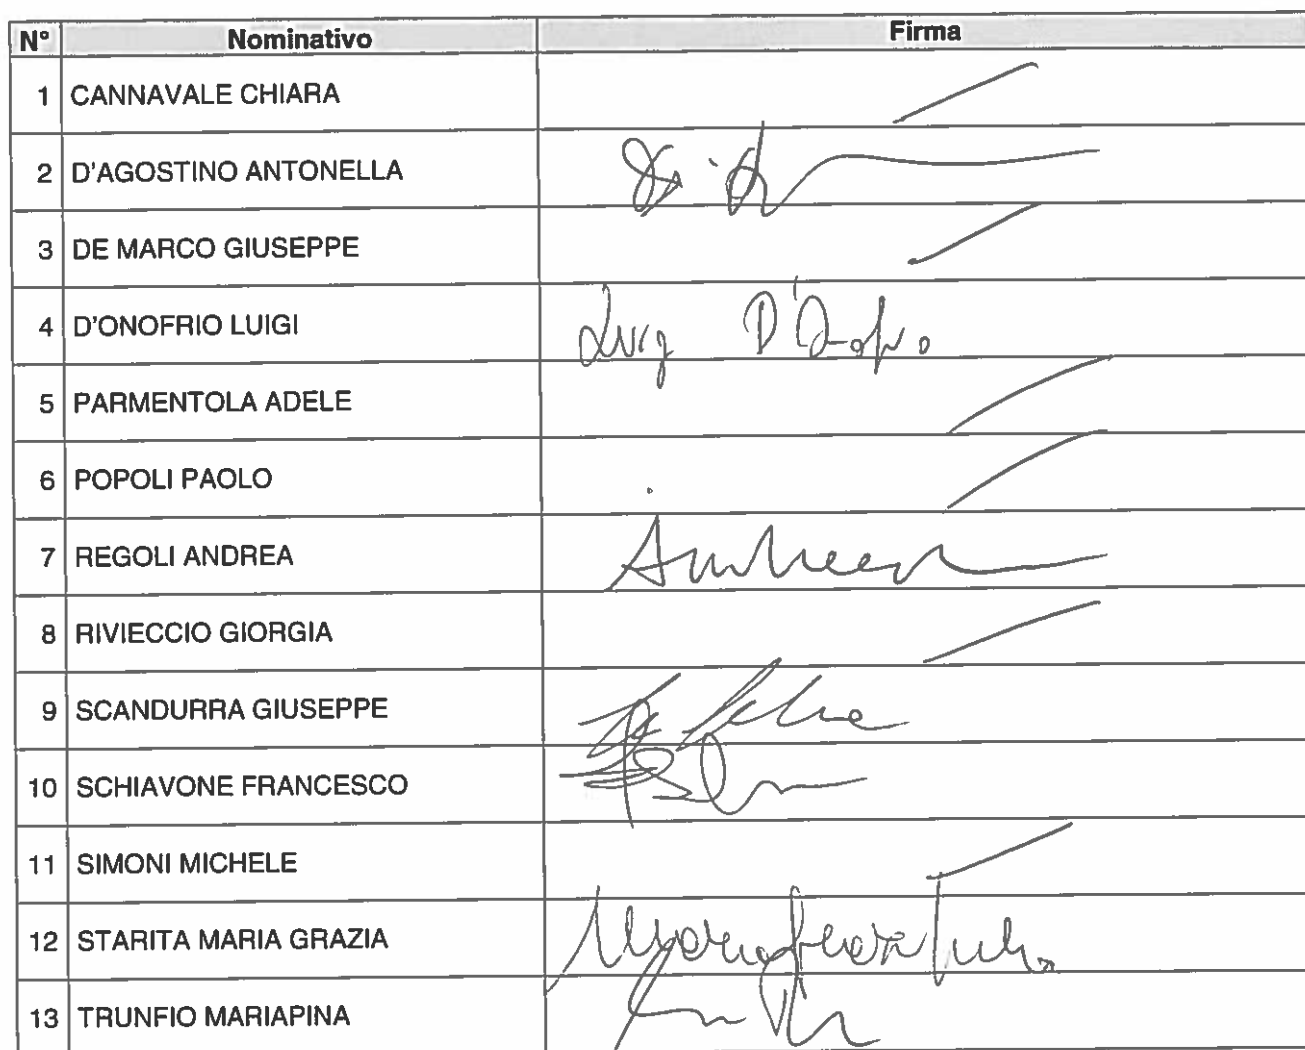 N° Nominativo Firma
1 CANNAVALE CHIARA
2 D'AGOSTINO ANTONELLA
3 DE MARCO GIUSEPPE
4 D'ONOFRIO LUIGI Luigi D'Onofrio
5 PARMENTOLA ADELE
6 POPOLI PAOLO
7 REGOLI ANDREA
8 RIVIECCIO GIORGIA
9 SCANDURRA GIUSEPPE
10 SCHIAVONE FRANCESCO
11 SIMONI MICHELE
12 STARITA MARIA GRAZIA
13 TRUNFIO MARIAPINA